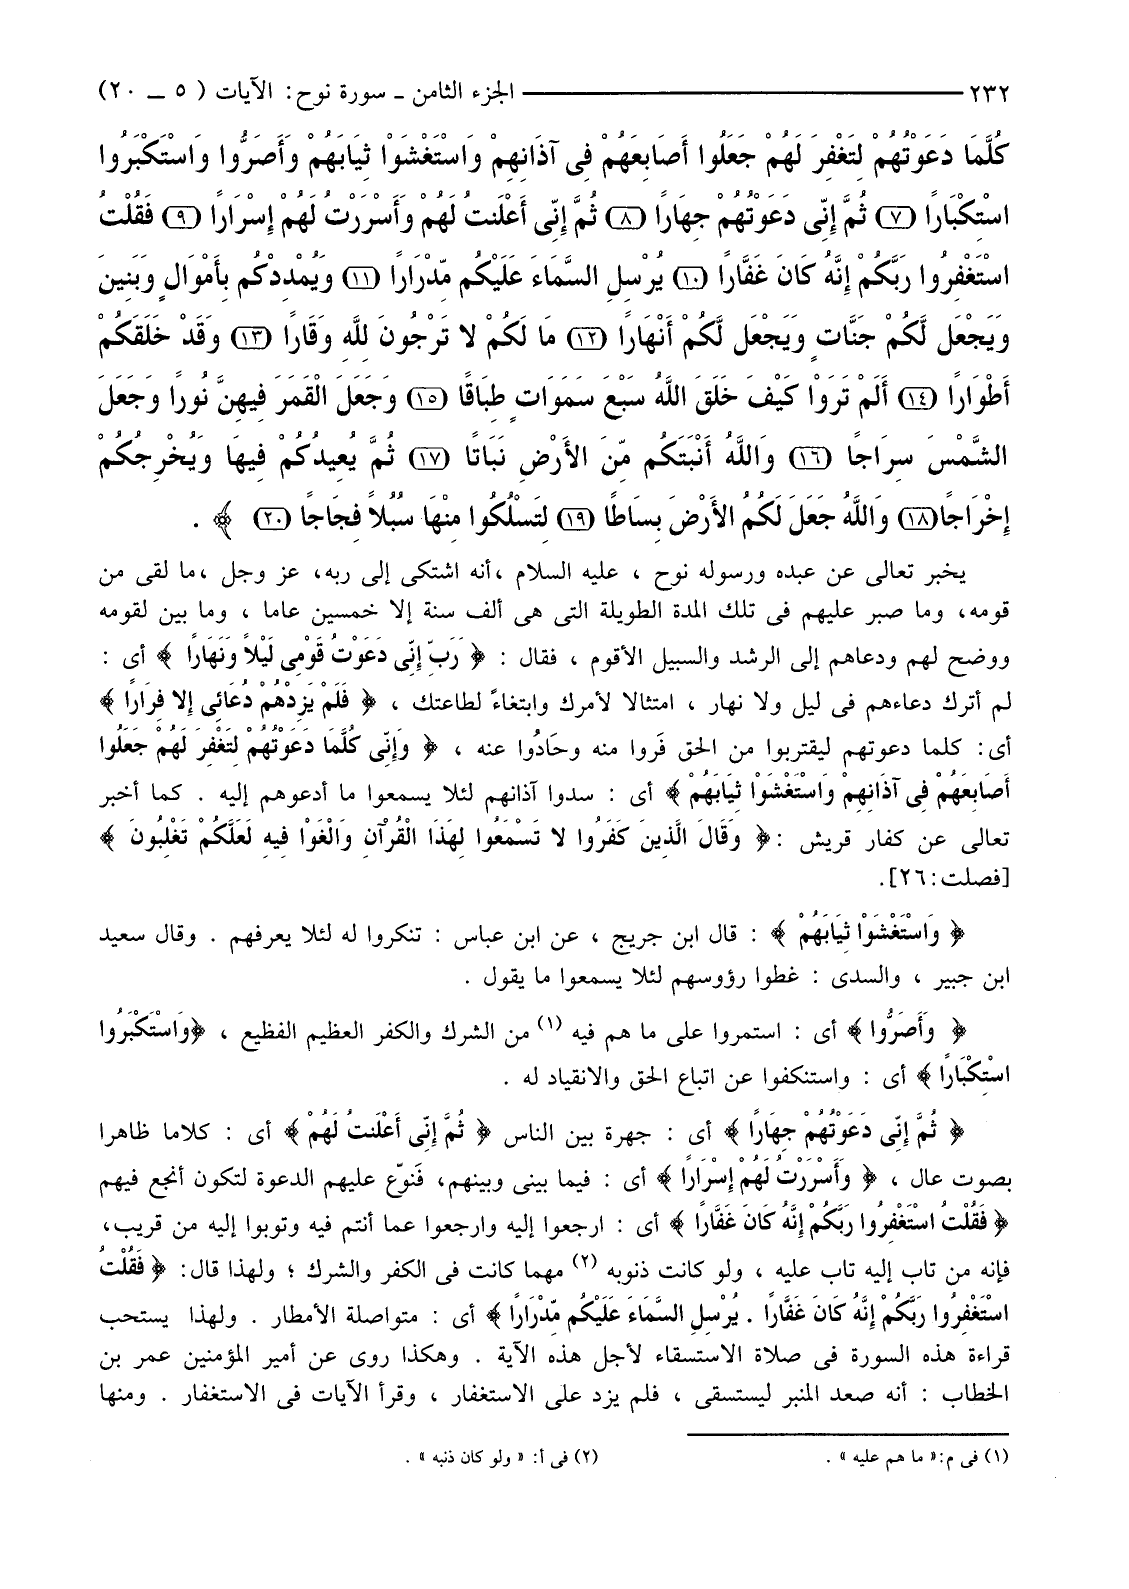 ٢٣٢ ــــــــــــــــــــــــــــ الجزء الثامن ـ سورة نوح: الآيات ( ٥ ــ ٢٠)
كُلَّمَا دَعَوْتُهُمْ لِتَغْفِرَ لَهُمْ جَعَلُوا أَصَابِعَهُمْ فِي آذَانِهِمْ وَاسْتَغْشَوْا ثِيَابَهُمْ وَأَصَرُّوا وَاسْتَكْبَرُوا
اسْتِكْبَارًا (٧) ثُمَّ إِنِّي دَعَوْتُهُمْ جِهَارًا (٨) ثُمَّ إِنِّي أَعْلَنتُ لَهُمْ وَأَسْرَرْتُ لَهُمْ إِسْرَارًا (٩) فَقُلْتُ
اسْتَغْفِرُوا رَبَّكُمْ إِنَّهُ كَانَ غَفَّارًا (١٠) يُرْسِلِ السَّمَاءَ عَلَيْكُم مِّدْرَارًا (١١) وَيُمْدِدْكُم بِأَمْوَالٍ وَبَنِينَ
وَيَجْعَل لَّكُمْ جَنَّاتٍ وَيَجْعَل لَّكُمْ أَنْهَارًا (١٢) مَا لَكُمْ لا تَرْجُونَ لِلَّهِ وَقَارًا (١٣) وَقَدْ خَلَقَكُمْ
أَطْوَارًا (١٤) أَلَمْ تَرَوْا كَيْفَ خَلَقَ اللَّهُ سَبْعَ سَمَوَاتٍ طِبَاقًا (١٥) وَجَعَلَ الْقَمَرَ فِيهِنَّ نُورًا وَجَعَلَ
الشَّمْسَ سِرَاجًا (١٦) وَاللَّهُ أَنْبَتَكُم مِّنَ الأَرْضِ نَبَاتًا (١٧) ثُمَّ يُعِيدُكُمْ فِيهَا وَيُخْرِجُكُمْ
إِخْرَاجًا(١٨) وَاللَّهُ جَعَلَ لَكُمُ الأَرْضَ بِسَاطًا (١٩) لِتَسْلُكُوا مِنْهَا سُبُلاً فِجَاجًا (٢٠) ﴾ .
يخبر تعالى عن عبده ورسوله نوح ، عليه السلام ،أنه اشتكى إلى ربه، عز وجل ،ما لقى من
قومه، وما صبر عليهم فى تلك المدة الطويلة التى هى ألف سنة إلا خمسين عاما ، وما بين لقومه
ووضح لهم ودعاهم إلى الرشد والسبيل الأقوم ، فقال : ﴿ رَبِّ إِنِّي دَعَوْتُ قَوْمِي لَيْلاً وَنَهَارًا ﴾ أى :
لم أترك دعاءهم فى ليل ولا نهار ، امتثالا لأمرك وابتغاءً لطاعتك ، ﴿ فَلَمْ يَزِدْهُمْ دُعَائِي إِلا فِرَارًا ﴾
أى: كلما دعوتهم ليقتربوا من الحق فَروا منه وحَادُوا عنه ، ﴿ وَإِنِّي كُلَّمَا دَعَوْتُهُمْ لِتَغْفِرَ لَهُمْ جَعَلُوا
أَصَابِعَهُمْ فِي آذَانِهِمْ وَاسْتَغْشَوْا ثِيَابَهُمْ ﴾ أى : سدوا آذانهم لئلا يسمعوا ما أدعوهم إليه . كما أخبر
تعالى عن كفار قريش :﴿ وَقَالَ الَّذِينَ كَفَرُوا لا تَسْمَعُوا لِهَذَا الْقُرْآنِ وَالْغَوْا فِيهِ لَعَلَّكُمْ تَغْلِبُونَ ﴾
[فصلت:٢٦].
﴿ وَاسْتَغْشَوْا ثِيَابَهُمْ ﴾ : قال ابن جريج ، عن ابن عباس : تنكروا له لئلا يعرفهم . وقال سعيد
ابن جبير ، والسدى : غطوا رؤوسهم لئلا يسمعوا ما يقول .
﴿ وَأَصَرُّوا ﴾ أى : استمروا على ما هم فيه (١) من الشرك والكفر العظيم الفظيع ، ﴿وَاسْتَكْبَرُوا
اسْتِكْبَارًا ﴾ أى : واستنكفوا عن اتباع الحق والانقياد له .
﴿ ثُمَّ إِنِّي دَعَوْتُهُمْ جِهَارًا ﴾ أى : جهرة بين الناس ﴿ ثُمَّ إِنِّي أَعْلَنتُ لَهُمْ ﴾ أى : كلاما ظاهرا
بصوت عال ، ﴿ وَأَسْرَرْتُ لَهُمْ إِسْرَارًا ﴾ أى : فيما بينى وبينهم، فَنوّع عليهم الدعوة لتكون أنجع فيهم
﴿ فَقُلْتُ اسْتَغْفِرُوا رَبَّكُمْ إِنَّهُ كَانَ غَفَّارًا ﴾ أى : ارجعوا إليه وارجعوا عما أنتم فيه وتوبوا إليه من قريب،
فإنه من تاب إليه تاب عليه ، ولو كانت ذنوبه (٢) مهما كانت فى الكفر والشرك ؛ ولهذا قال: ﴿ فَقُلْتُ
اسْتَغْفِرُوا رَبَّكُمْ إِنَّهُ كَانَ غَفَّارًا . يُرْسِلِ السَّمَاءَ عَلَيْكُم مِّدْرَارًا ﴾ أى : متواصلة الأمطار . ولهذا يستحب
قراءة هذه السورة فى صلاة الاستسقاء لأجل هذه الآية . وهكذا روى عن أمير المؤمنين عمر بن
الخطاب : أنه صعد المنبر ليستسقى ، فلم يزد على الاستغفار ، وقرأ الآيات فى الاستغفار . ومنها
(١) فى م:« ما هم عليه» . (٢) فى أ: « ولو كان ذنبه » .